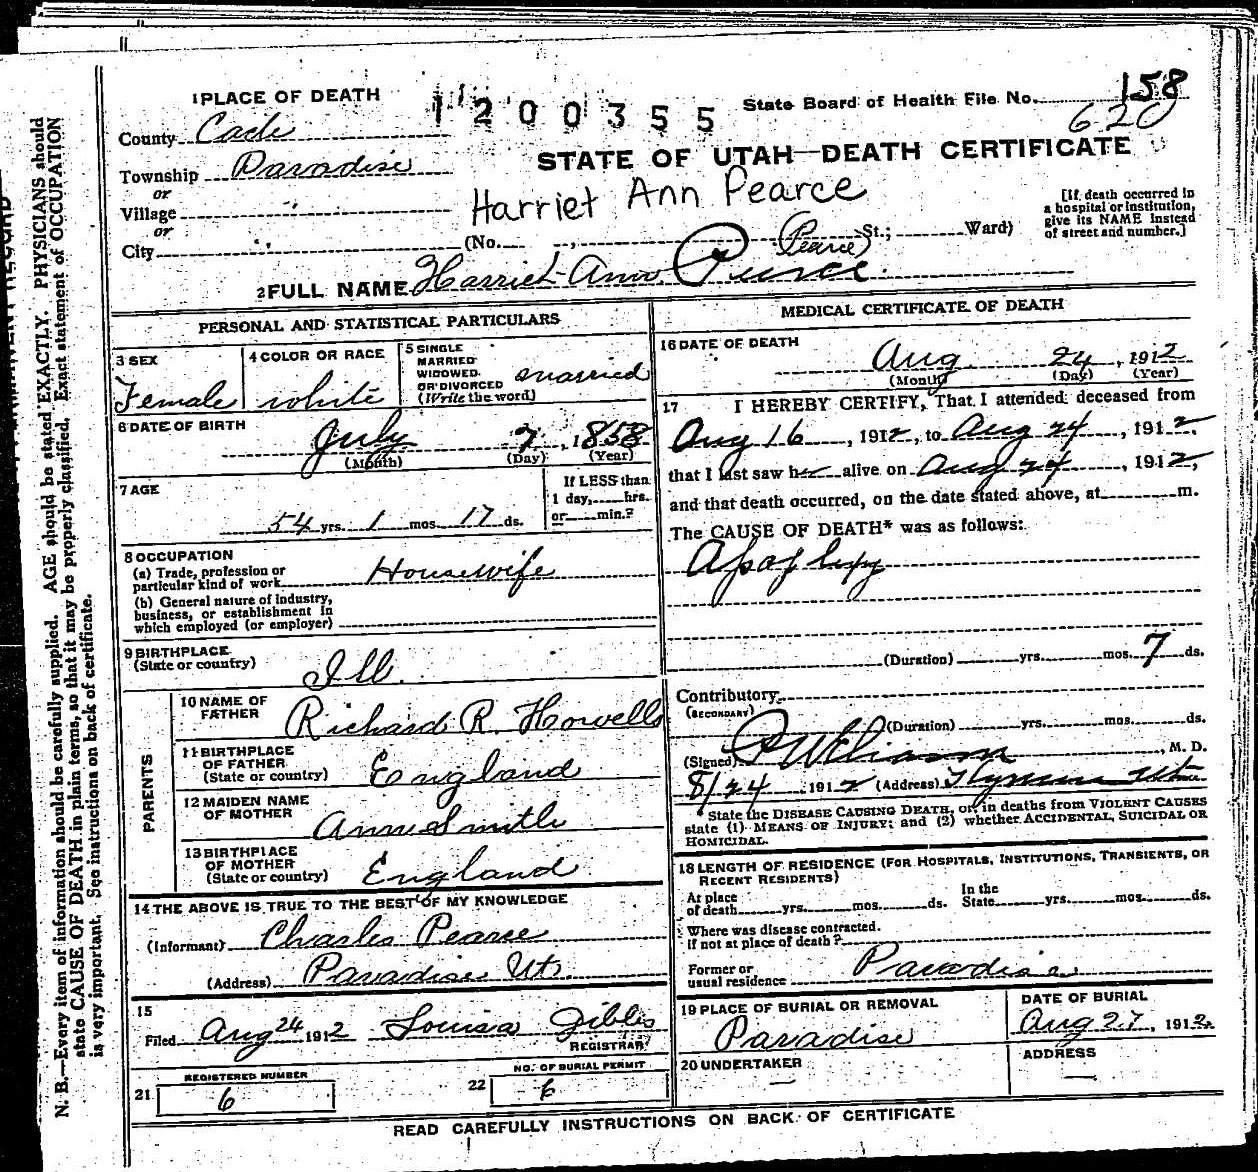 1 PLACE OF DEATH
1 2 0 0 3 5 5
State Board of Health File No. 158
620
County Cache
STATE OF UTAH—DEATH CERTIFICATE
Township Paradise
or
Village
or
City
Harriet Ann Pearce
[If death occurred in
a hospital or institution,
give its NAME instead
of street and number.]
(No. St.; Ward)
(Pearce)
2 FULL NAME Harriet Ann Pearce
PERSONAL AND STATISTICAL PARTICULARS
3 SEX
Female
4 COLOR OR RACE
white
5 SINGLE
MARRIED
WIDOWED
OR DIVORCED
(Write the word)
married
6 DATE OF BIRTH
July 7, 1858
(Month) (Day) (Year)
7 AGE
54 yrs. 1 mos. 17 ds.
If LESS than
1 day, hrs.
or min.?
8 OCCUPATION
(a) Trade, profession or
particular kind of work Housewife
(b) General nature of industry,
business, or establishment in
which employed (or employer)
9 BIRTHPLACE
(State or country)
Ill.
PARENTS
10 NAME OF
FATHER
Richard R. Howells
11 BIRTHPLACE
OF FATHER
(State or country) England
12 MAIDEN NAME
OF MOTHER
Ann Smith
13 BIRTHPLACE
OF MOTHER
(State or country) England
14 THE ABOVE IS TRUE TO THE BEST OF MY KNOWLEDGE
(Informant) Charles Pearce
(Address) Paradise Ut.
15
Filed Aug 24 1912 Louisa Gibbs
REGISTRAR
21 REGISTERED NUMBER
6
22 NO. OF BURIAL PERMIT
6
MEDICAL CERTIFICATE OF DEATH
16 DATE OF DEATH
Aug. 24, 1912
(Month) (Day) (Year)
17 I HEREBY CERTIFY, That I attended deceased from
Aug 16, 1912, to Aug 24, 1912,
that I last saw her alive on Aug 24, 1912,
and that death occurred, on the date stated above, at m.
The CAUSE OF DEATH* was as follows:
Apoplexy
(Duration) yrs. mos. 7 ds.
Contributory
(SECONDARY)
(Duration) yrs. mos. ds.
(Signed) M. D.
8/24, 1912 (Address) Hyrum Utah
* State the DISEASE CAUSING DEATH, or, in deaths from VIOLENT CAUSES
state (1) MEANS OF INJURY; and (2) whether ACCIDENTAL, SUICIDAL OR
HOMICIDAL.
18 LENGTH OF RESIDENCE (FOR HOSPITALS, INSTITUTIONS, TRANSIENTS, OR
RECENT RESIDENTS)
At place
of death yrs. mos. ds.
In the
State yrs. mos. ds.
Where was disease contracted.
if not at place of death?
Former or
usual residence Paradise
19 PLACE OF BURIAL OR REMOVAL
Paradise
DATE OF BURIAL
Aug 27, 1912
20 UNDERTAKER
—
ADDRESS
—
READ CAREFULLY INSTRUCTIONS ON BACK OF CERTIFICATE
PERMANENT RECORD
N. B.—Every item of information should be carefully supplied. AGE should be stated EXACTLY. PHYSICIANS should
state CAUSE OF DEATH in plain terms, so that it may be properly classified. Exact statement of OCCUPATION
is very important. See instructions on back of certificate.